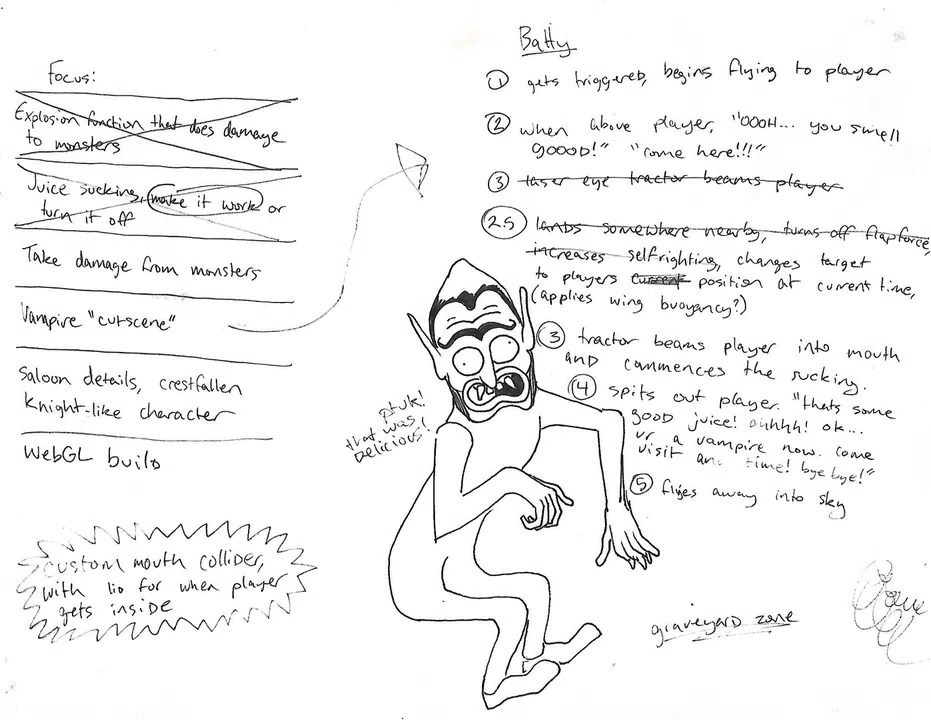 Focus:
Explosion function that does damage
to monsters
Juice sucking, make it work or
turn it off
Take damage from monsters
Vampire "cutscene"
Saloon details, crestfallen
Knight-like character
WebGL build
custom mouth collider,
with lid for when player
gets inside
Batty
① gets triggered, begins flying to player
② when above player, "OOOH... you smell
goood!" "come here!!!"
③ laser eye tractor beams player
2.5 lands somewhere nearby, turns off flapforce,
increases selfrighting, changes target
to players current position at current time,
(applies wing buoyancy?)
③ tractor beams player into mouth
and commences the sucking.
④ spits out player. "thats some
good juice! ahhhh! ok...
ur a vampire now. come
visit any time! bye bye!"
⑤ flies away into sky
ptuk!
that was
delicious!
graveyard zone